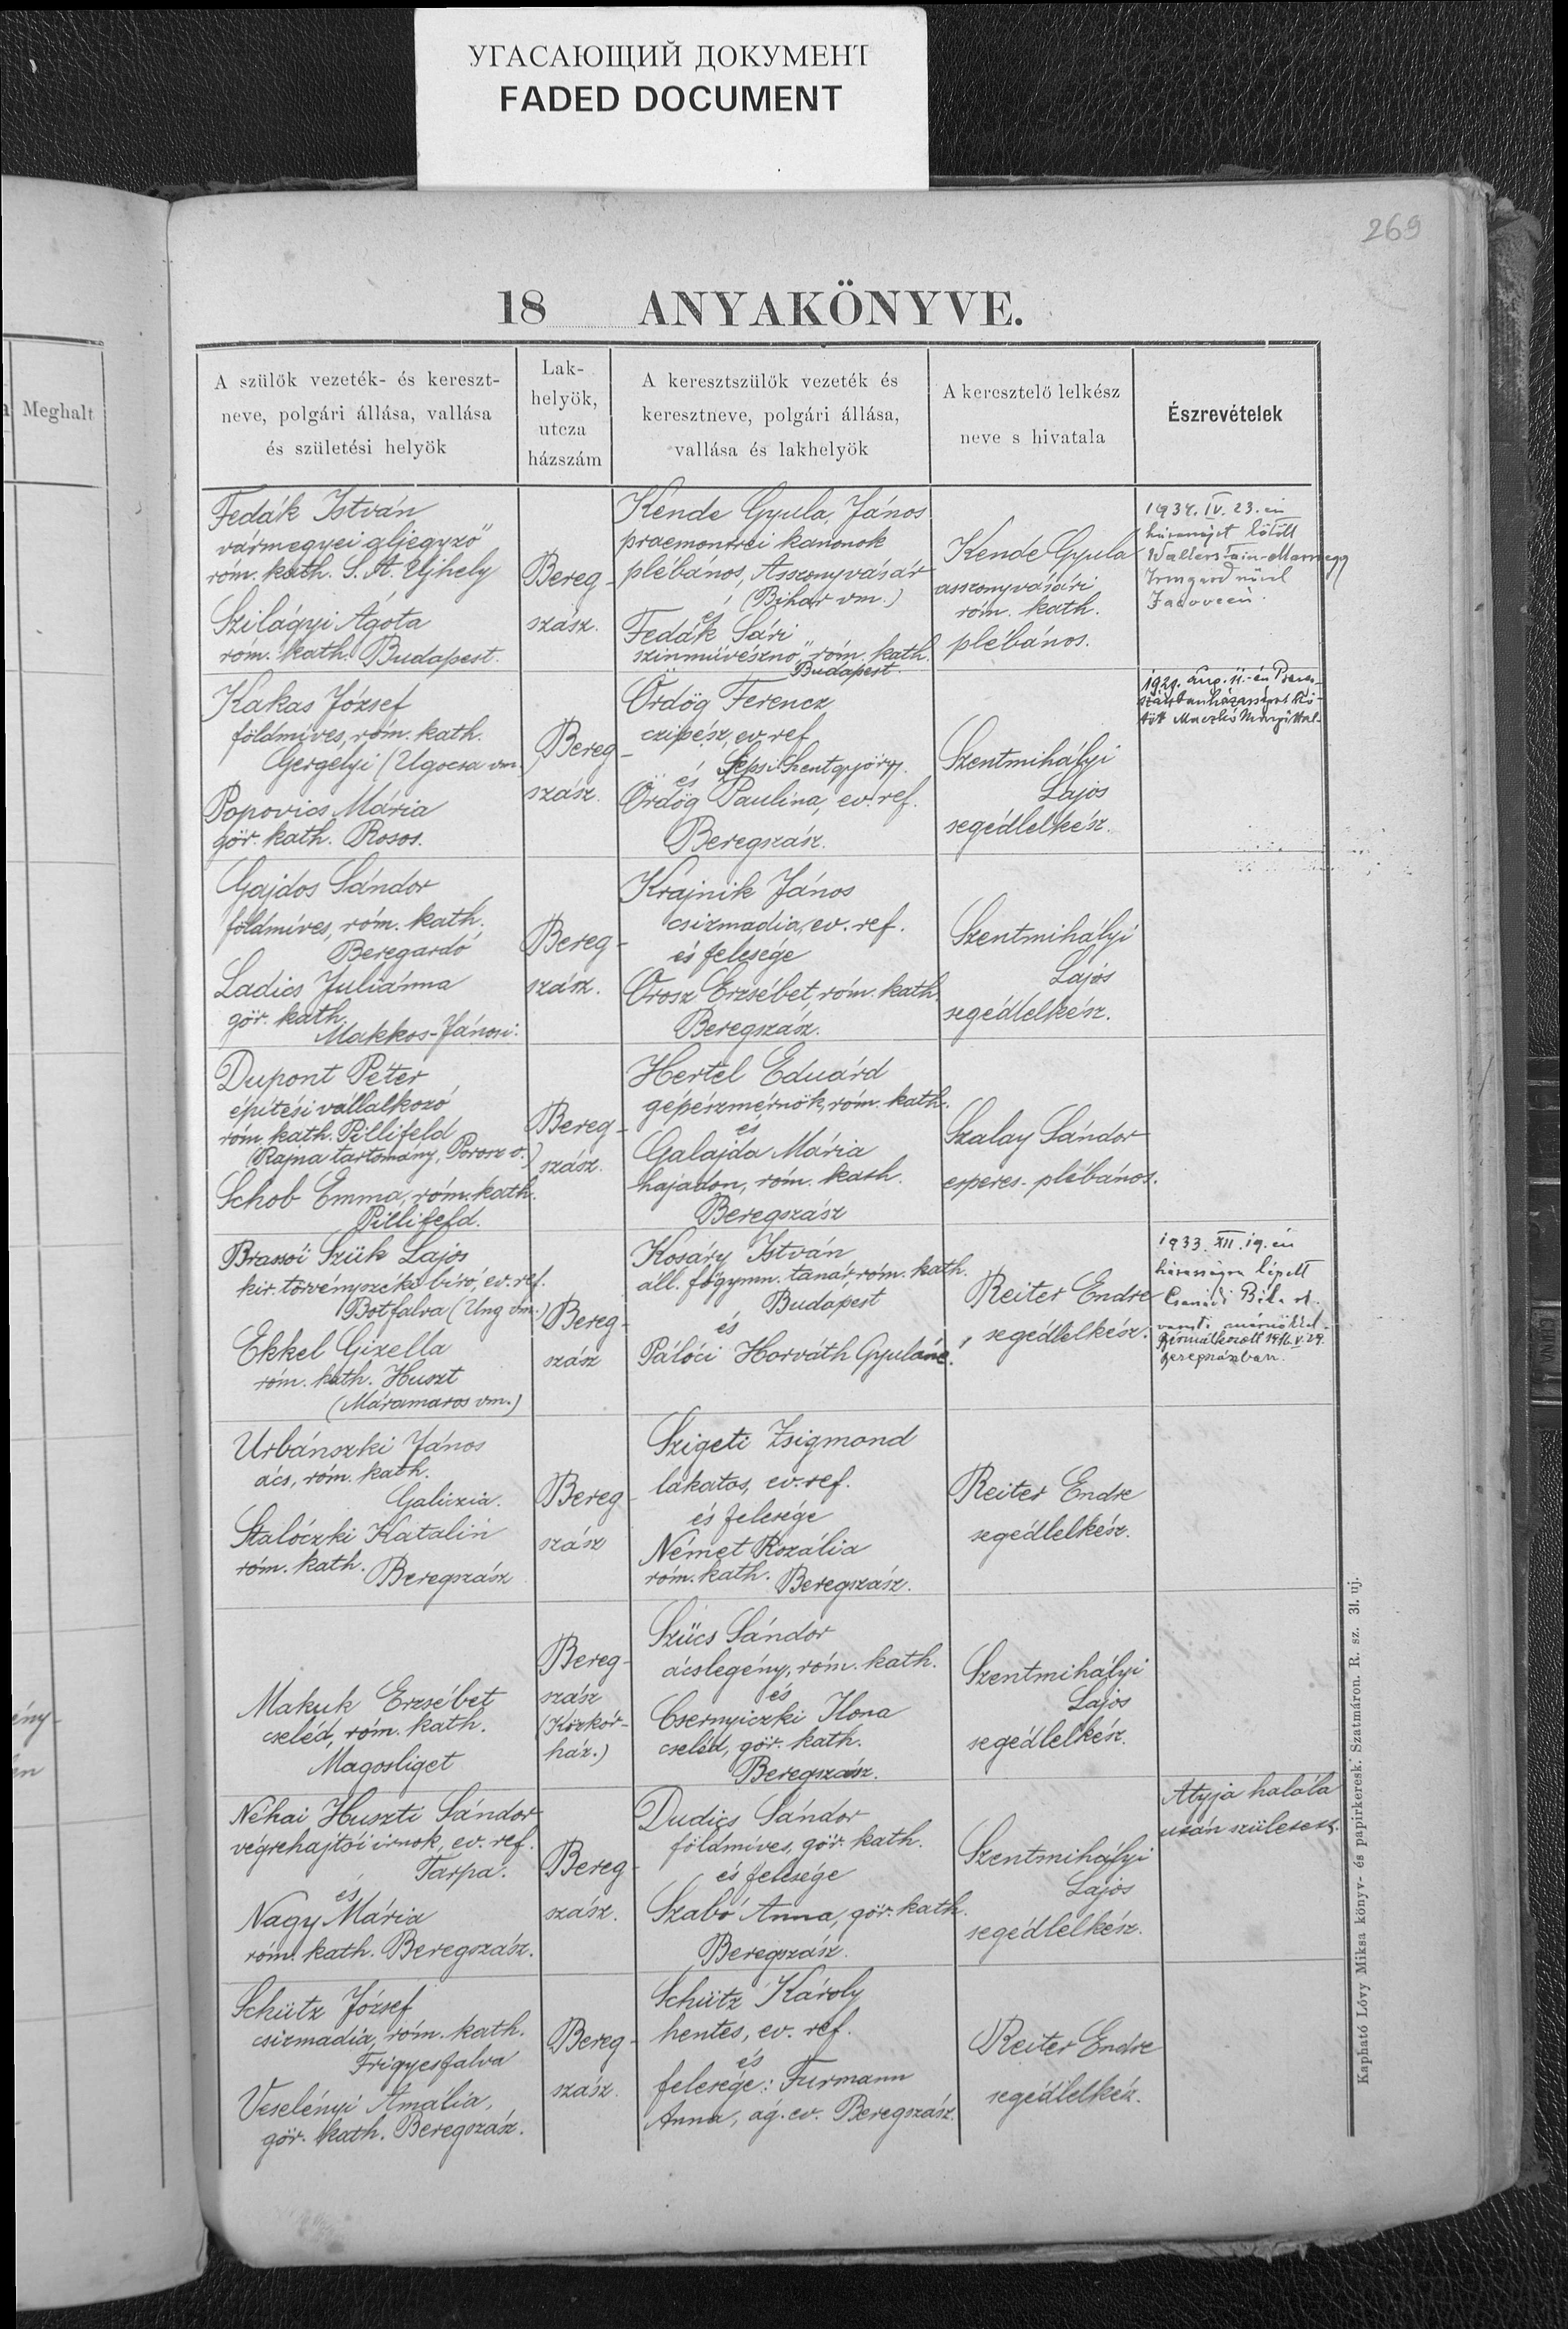 УГАСАЮЩИЙ ДОКУМЕНТ
FADED DOCUMENT
269
Meghalt
18 ANYAKÖNYVE.
A szülők vezeték- és kereszt-
neve, polgári állása, vallása
és születési helyök
Lak-
helyök,
utcza
házszám
A keresztszülők vezeték és
keresztneve, polgári állása,
vallása és lakhelyök
A keresztelő lelkész
neve s hivatala
Észrevételek
Fedák István
vármegyei aljegyző
róm. kath. S. A. Ujhely
Szilágyi Ágota
róm. kath. Budapest.
Bereg-
szász.
Kende Gyula, János
praemontrei kanonok
plébános, Asszonyvásár
(Bihar vm.)
és
Fedák Sári
szinművésznő, róm. kath.
Budapest.
Kende Gyula
asszonyvásári
róm. kath.
plébános.
1934. IV. 23.-án
házasságot kötött
Irmgard
Kakas József
földmíves, róm. kath.
Gergelyi (Ugocsa vm.
Popovics Mária
gör. kath. Rosos.
Bereg-
szász.
Ördög Ferencz
czipész, ev. ref.
Sepsi Szentgyörgy.
és
Ördög Paulina, ev. ref.
Beregszász.
Szentmihályi
Lajos
segédlelkész.
1929. aug. 11.-én
Gajdos Sándor
földmíves, róm. kath.
Beregardó
Ladics Juliánna
gör. kath.
Makkos-Jánosi.
Bereg-
szász.
Krajnik János
csizmadia, ev. ref.
és felesége
Orosz Erzsébet, róm. kath.
Beregszász.
Szentmihályi
Lajos
segédlelkész.
Dupont Péter
építési vállalkozó
róm. kath. Pillifeld
(Rajna tartomány, Porosz o.)
Schob Emma, róm. kath.
Pillifeld.
Bereg-
szász.
Hertel Eduárd
gépészmérnök, róm. kath.
és
Galajda Mária
hajadon, róm. kath.
Beregszász
Szalay Sándor
esperes-plébános.
Brassói Szük Lajos
kir. törvényszéki biró, ev. ref.
Botfalva (Ung vm.)
Ekkel Gizella
róm. kath. Huszt
(Máramaros vm.)
Bereg-
szász
Kosáry István
áll. főgymn. tanár, róm. kath.
Budapest
és
Pálóci Horváth Gyuláné.
Reiter Endre
segédlelkész.
1933. XII. 19. én
házasságra lépett
Csanádi Béla
mérnökkel.
Bérmálkozott 1916. V. 29.
Beregszászban.
Urbánszki János
ács, róm. kath.
Galiczia.
Stalóczki Katalin
róm. kath.
Beregszász
Bereg-
szász
Szigeti Zsigmond
lakatos, ev. ref.
és felesége
Német Rozália
róm. kath. Beregszász.
Reiter Endre
segédlelkész.
Makuk Erzsébet
cseléd, róm. kath.
Magosliget
Bereg-
szász
(Közkór-
ház.)
Szücs Sándor
ácslegény, róm. kath.
és
Csernyiczki Ilona
cseléd, gör. kath.
Beregszász.
Szentmihályi
Lajos
segédlelkész.
Néhai Huszti Sándor
végrehajtói irnok, ev. ref.
Tarpa.
és
Nagy Mária
róm. kath. Beregszász.
Bereg-
szász.
Dudics Sándor
földmíves, gör. kath.
és felesége
Szabó Anna, gör. kath.
Beregszász.
Szentmihályi
Lajos
segédlelkész.
Atyja halála
után született.
Schütz József
csizmadia, róm. kath.
Frigyesfalva
Veselényi Amália,
gör. kath. Beregszász.
Bereg-
szász.
Schütz Károly
hentes, ev. ref.
és
felesége: Furmann
Anna, ág. ev. Beregszász.
Reiter Endre
segédlelkész.
Kapható Lővy Miksa könyv- és papirkeresk. Szatmáron. R. sz. 31. uj.